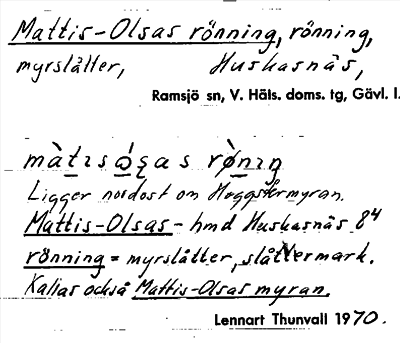 Mattis-Olsas rönning, rönning,
myrslåtter, Huskasnäs,
Ramsjö sn, V. Häls. doms. tg, Gävl. l.
Ligger nordost om
Mattis-Olsas - hmd Huskasnäs 84
rönning = myrslåtter, slåttermark.
Kallas också Mattis-Olsas myran.
Lennart Thunvall 1970.